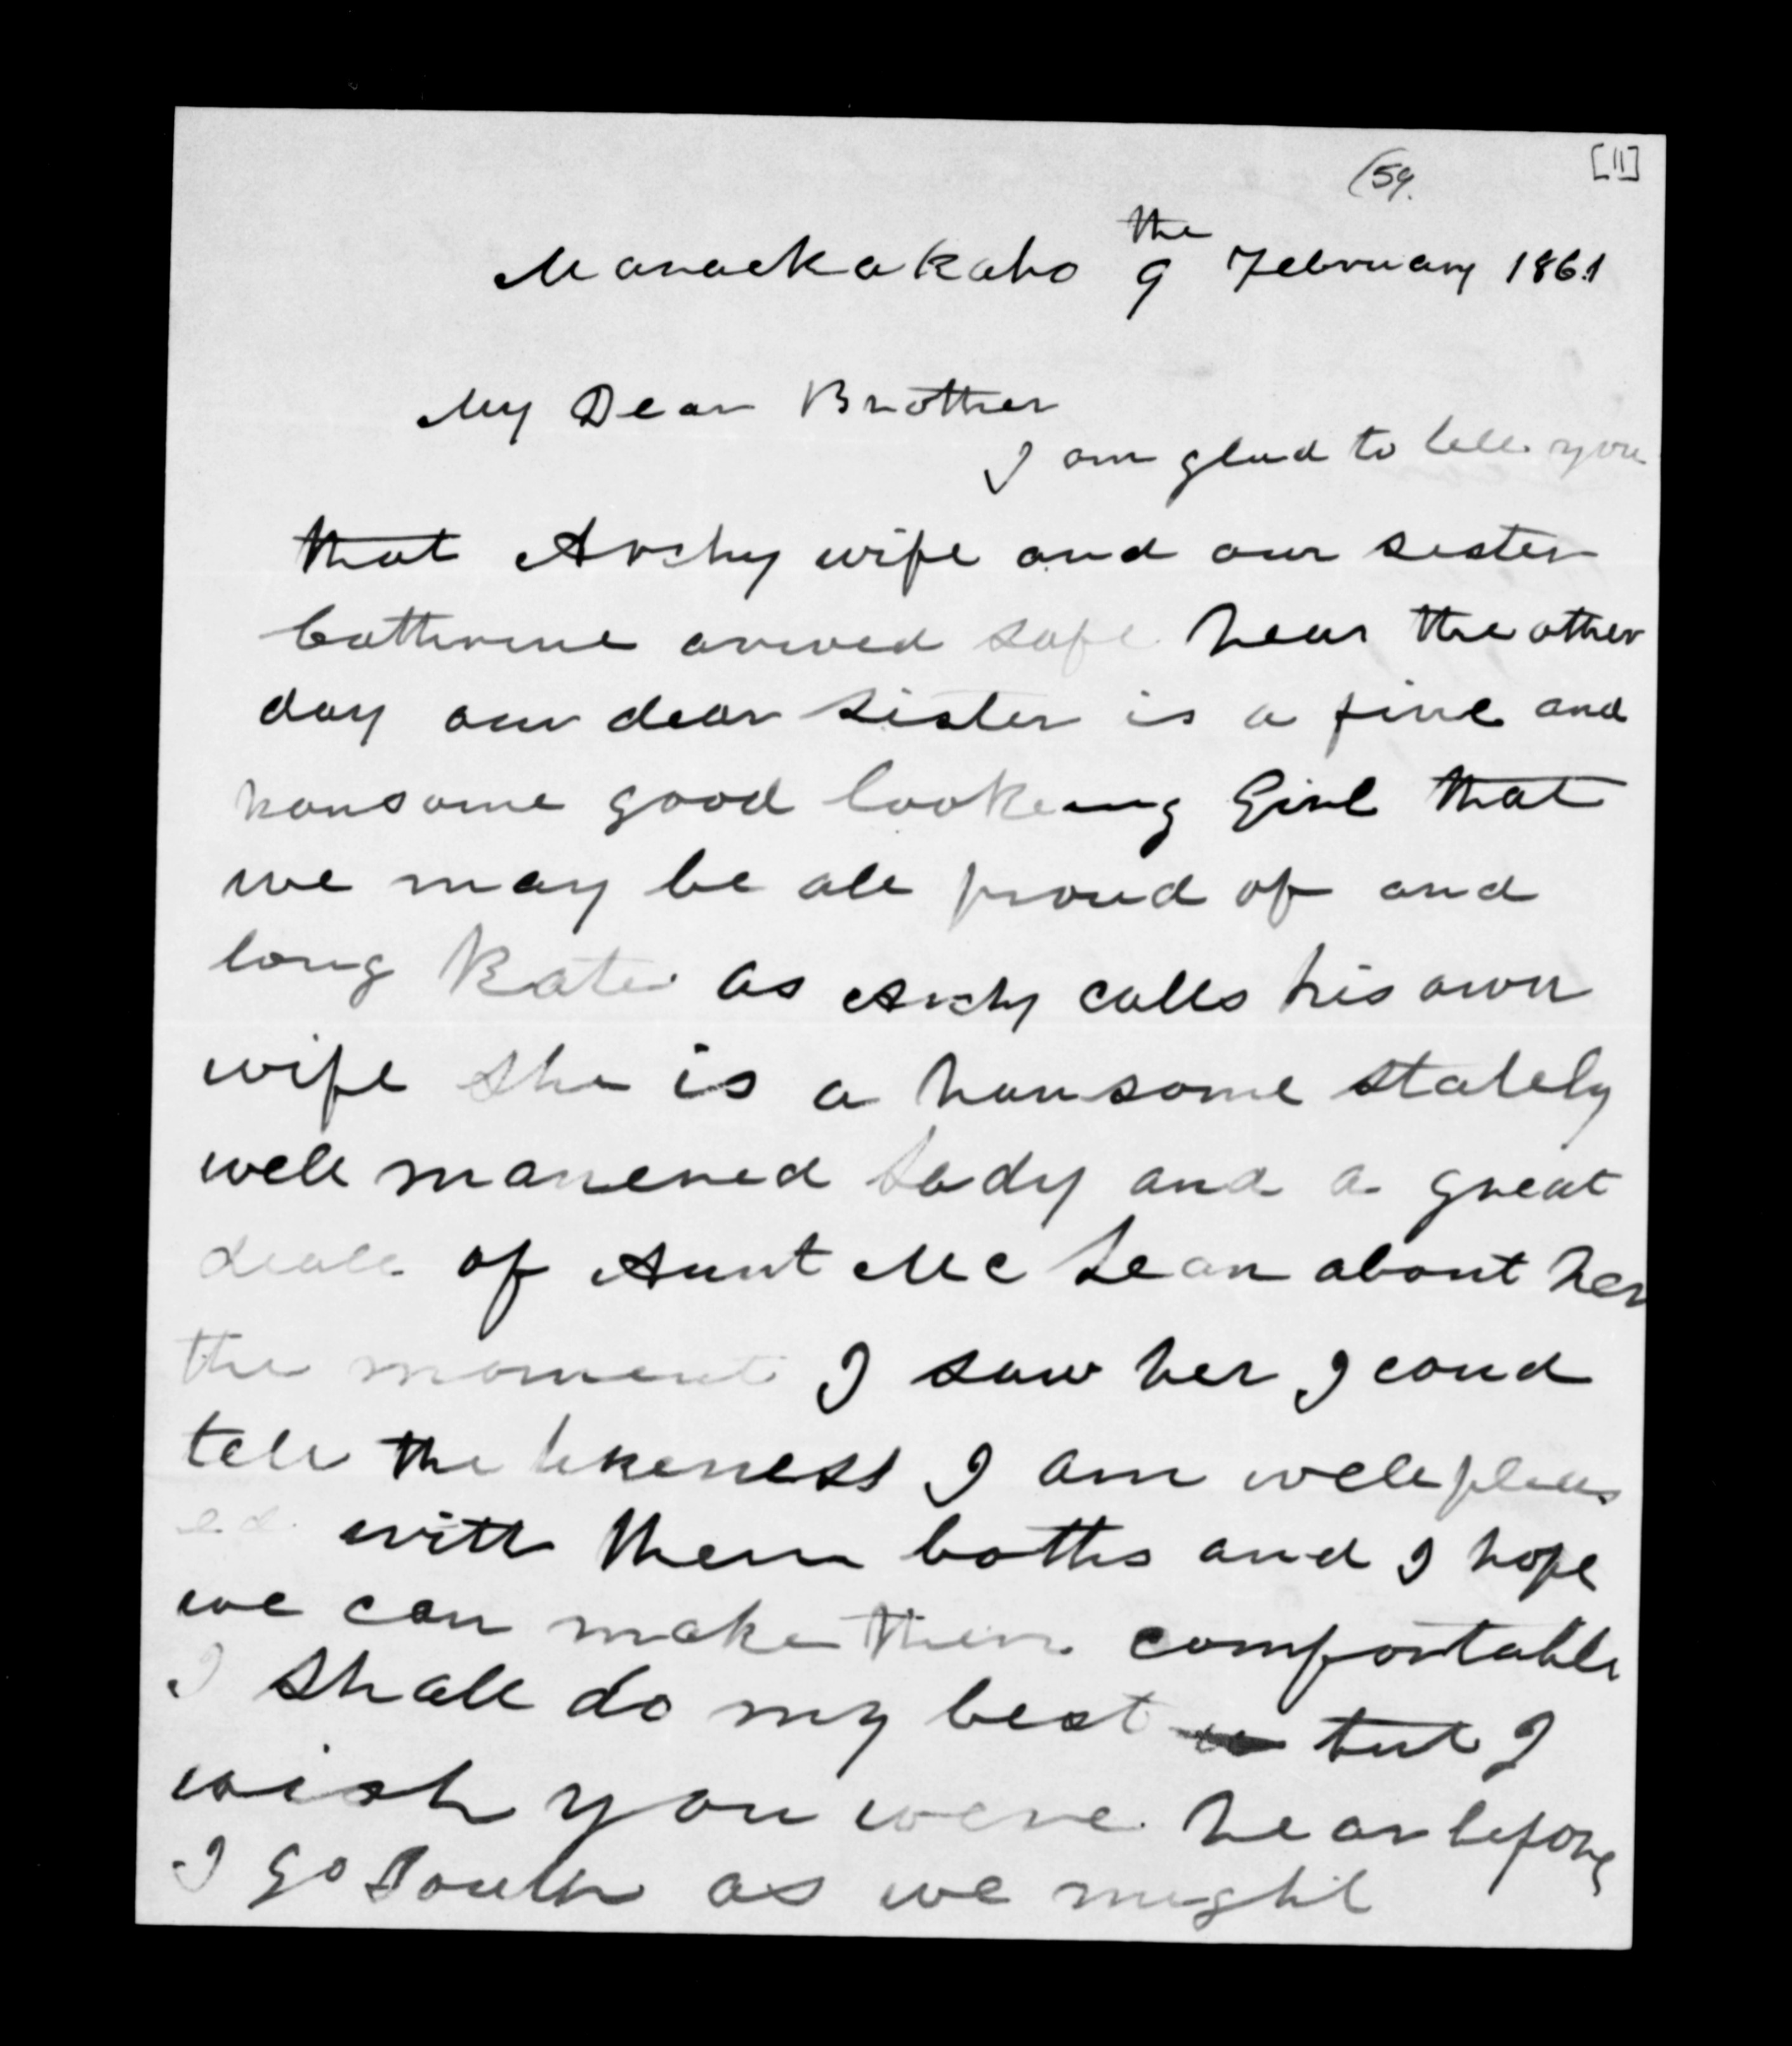 (59.
[11]
Manaekakaho the 9 February 1861
My Dear Brother
I am glad to tell you
that Archy wife and our sister
Catthrine arived safe hear the other
day our dear sister is a fine and
hansome good lookeing Girl that
we may be all proud of and
long Kate as Archy calls his own
wife she is a hansome stately
well manered Lady and a great
deall of Aunt McLean about her
the moment I saw her I coud
tell the likeness I am well pleas
ed with them boths and I hope
we can make them comfortable
I shall do my best but I
wish you were hear before
I go South as we might